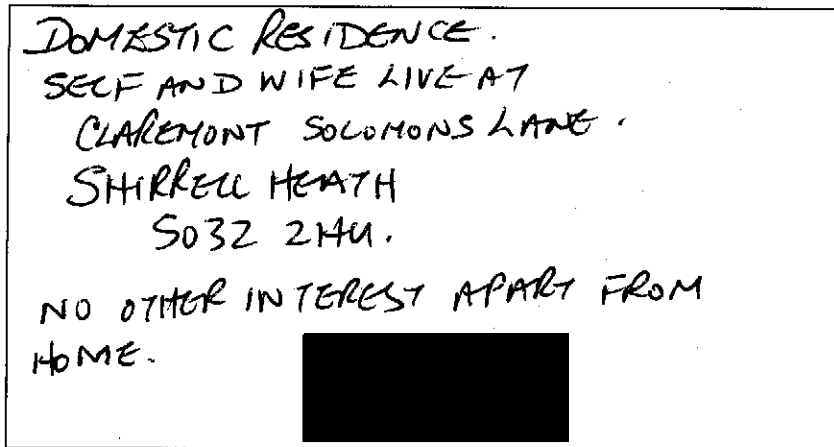 DOMESTIC RESIDENCE.
SELF AND WIFE LIVE AT
CLAREMONT SOLOMONS LANE.
SHIRRELL HEATH
SO32 2HU.
NO OTHER INTEREST APART FROM
HOME.